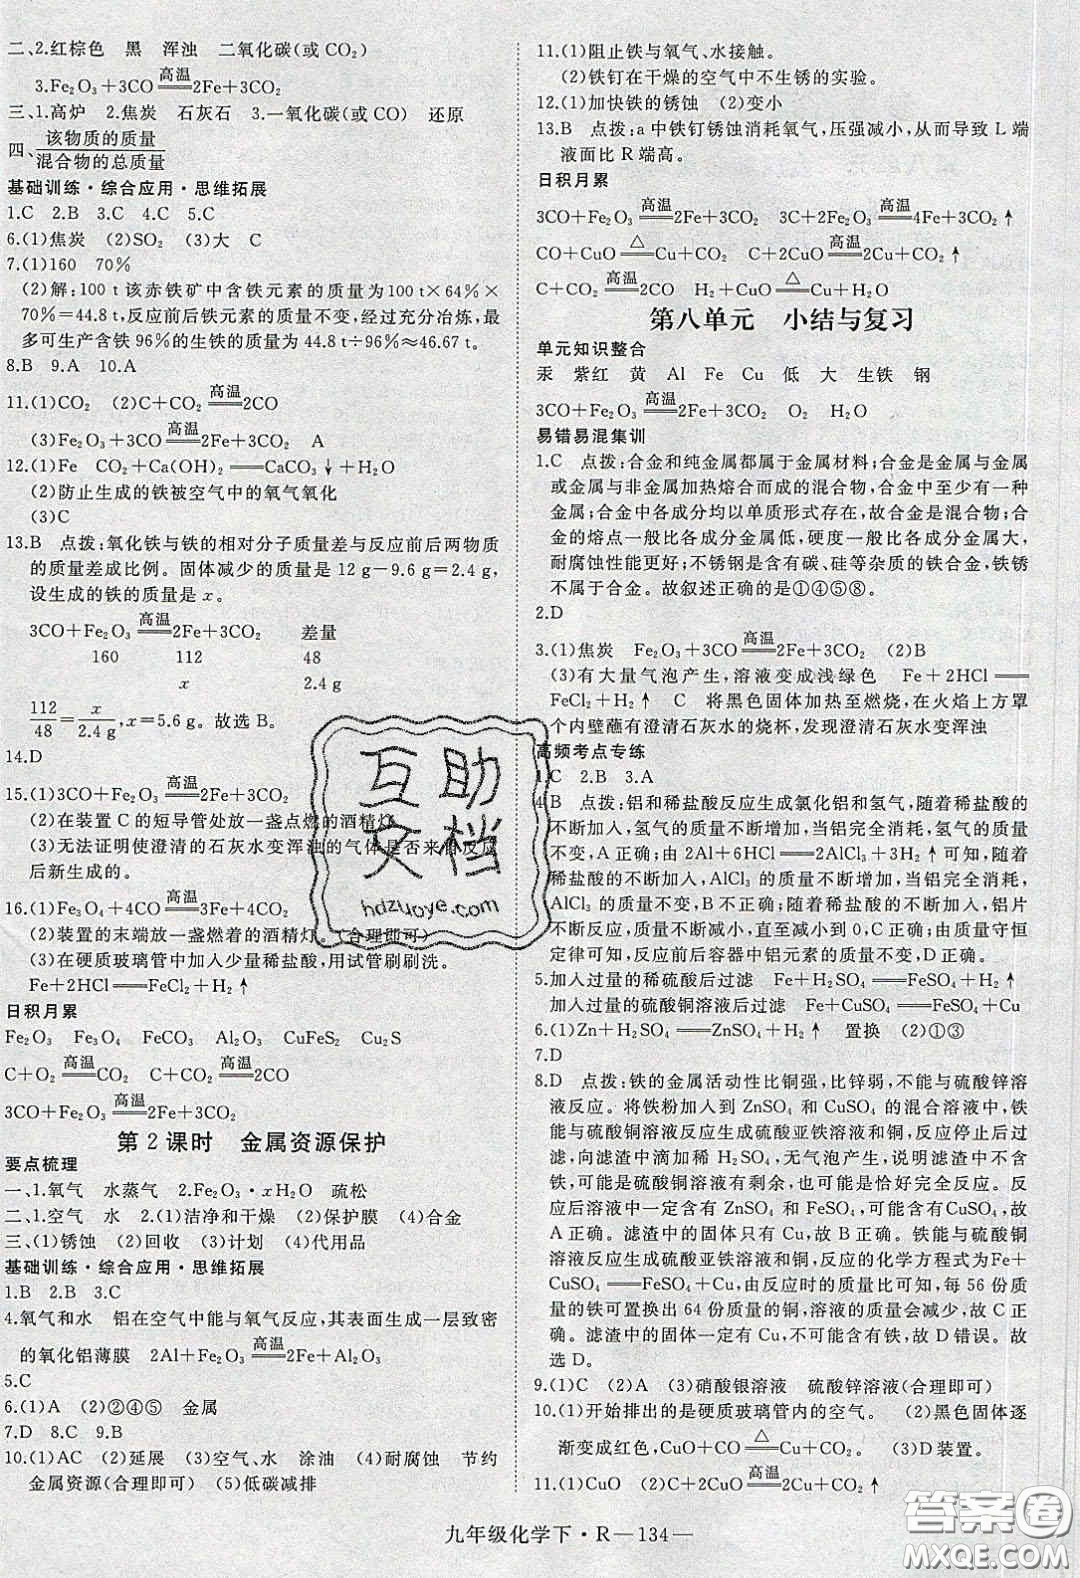 二、2.红棕色 黑 浑浊 二氧化碳(或 CO₂)
3.Fe₂O₃+3CO=高温=2Fe+3CO₂
三、1.高炉 2.焦炭 石灰石 3.一氧化碳(或 CO) 还原
四、该物质的质量/混合物的总质量
基础训练·综合应用·思维拓展
1.C 2.B 3.C 4.C 5.C
6.(1)焦炭 (2)SO₂ (3)大 C
7.(1)160 70%
(2)解:100 t 该赤铁矿中含铁元素的质量为 100 t×64%×
70%=44.8 t,反应前后铁元素的质量不变,经过充分冶炼,最
多可生产含铁 96%的生铁的质量为 44.8 t÷96%≈46.67 t。
8.B 9.A 10.A
11.(1)CO₂ (2)C+CO₂=高温=2CO
(3)Fe₂O₃+3CO=高温=2Fe+3CO₂ A
12.(1)Fe CO₂+Ca(OH)₂=CaCO₃↓+H₂O
(2)防止生成的铁被空气中的氧气氧化
(3)C
13.B 点拨:氧化铁与铁的相对分子质量差与反应前后两物质
的质量差成比例。固体减少的质量是 12 g-9.6 g=2.4 g,
设生成的铁的质量是 x。
3CO+Fe₂O₃=高温=2Fe+3CO₂ 差量
160 112 48
x 2.4 g
112/48=x/2.4 g,x=5.6 g。故选 B。
14.D
15.(1)3CO+Fe₂O₃=高温=2Fe+3CO₂
(2)在装置 C 的短导管处放一盏点燃的酒精灯
(3)无法证明使澄清的石灰水变浑浊的气体是否来自反应
后新生成的。
16.(1)Fe₃O₄+4CO=高温=3Fe+4CO₂
(2)装置的末端放一盏燃着的酒精灯。(合理即可)
(3)在硬质玻璃管中加入少量稀盐酸,用试管刷刷洗。
Fe+2HCl=FeCl₂+H₂↑
日积月累
Fe₂O₃ Fe₃O₄ FeCO₃ Al₂O₃ CuFeS₂ Cu₂S
C+O₂=高温=CO₂ C+CO₂=高温=2CO
3CO+Fe₂O₃=高温=2Fe+3CO₂
第 2 课时 金属资源保护
要点梳理
一、1.氧气 水蒸气 2.Fe₂O₃·xH₂O 疏松
二、1.空气 水 2.(1)洁净和干燥 (2)保护膜 (4)合金
三、(1)锈蚀 (2)回收 (3)计划 (4)代用品
基础训练·综合应用·思维拓展
1.B 2.B 3.C
4.氧气和水 铝在空气中能与氧气反应,其表面生成一层致密
的氧化铝薄膜 2Al+Fe₂O₃=高温=2Fe+Al₂O₃
5.C
6.(1)A (2)②④⑤ 金属
7.D 8.C 9.B
10.(1)AC (2)延展 (3)空气、水 涂油 (4)耐腐蚀 节约
金属资源(合理即可) (5)低碳减排
11.(1)阻止铁与氧气、水接触。
(2)铁钉在干燥的空气中不生锈的实验。
12.(1)加快铁的锈蚀 (2)变小
13.B 点拨:a 中铁钉锈蚀消耗氧气,压强减小,从而导致 L 端
液面比 R 端高。
日积月累
3CO+Fe₂O₃=高温=2Fe+3CO₂ 3C+2Fe₂O₃=高温=4Fe+3CO₂↑
CO+CuO=△=Cu+CO₂ C+2CuO=高温=2Cu+CO₂↑
C+CO₂=高温=2CO H₂+CuO=△=Cu+H₂O
第八单元 小结与复习
单元知识整合
汞 紫红 黄 Al Fe Cu 低 大 生铁 钢
3CO+Fe₂O₃=高温=2Fe+3CO₂ O₂ H₂O
易错易混集训
1.C 点拨:合金和纯金属都属于金属材料;合金是金属与金属
或金属与非金属加热熔合而成的混合物,合金中至少有一种
金属;合金中各成分均以单质形式存在,故合金是混合物;合
金的熔点一般比各成分金属低,硬度一般比各成分金属大,
耐腐蚀性能一般更好;不锈钢是含有碳、硅等杂质的铁合金,铁锈
不属于合金。故叙述正确的是①④⑤⑧。
2.D
3.(1)焦炭 Fe₂O₃+3CO=高温=2Fe+3CO₂ (2)B
(3)有大量气泡产生,溶液变成浅绿色 Fe+2HCl=
FeCl₂+H₂↑ C 将黑色固体加热至燃烧,在火焰上方罩
个内壁蘸有澄清石灰水的烧杯,发现澄清石灰水变浑浊
高频考点专练
1.C 2.B 3.A
4.B 点拨:铝和稀盐酸反应生成氯化铝和氢气,随着稀盐酸的
不断加入,氢气的质量不断增加,当铝完全消耗,氢气的质量
不变,A 正确;由 2Al+6HCl=2AlCl₃+3H₂↑可知,随着
稀盐酸的不断加入,AlCl₃ 的质量不断增加,当铝完全消耗,
AlCl₃ 的质量不变,B 不正确;随着稀盐酸的不断加入,铝片
不断反应,质量不断减小,直至减小到 0,C 正确;由质量守恒
定律可知,反应前后容器中铝元素的质量不变,D 正确。
5.加入过量的稀硫酸后过滤 Fe+H₂SO₄=FeSO₄+H₂↑
加入过量的硫酸铜溶液后过滤 Fe+CuSO₄=FeSO₄+Cu
6.(1)Zn+H₂SO₄=ZnSO₄+H₂↑ 置换 (2)①③
7.D
8.D 点拨:铁的金属活动性比铜强,比锌弱,不能与硫酸锌溶
液反应。将铁粉加入到 ZnSO₄ 和 CuSO₄ 的混合溶液中,铁
能与硫酸铜溶液反应生成硫酸亚铁溶液和铜,反应停止后过
滤,向滤渣中滴入少量稀 H₂SO₄,无气泡产生,说明滤渣中无
铁,可能是硫酸铜有剩余,滤液中可能含有 CuSO₄,所以滤
液反应后溶液中一定存在 ZnSO₄ 和 FeSO₄,可能含有 CuSO₄,
故 A 正确。滤渣中的固体只有 Cu,故 B 正确。铁能与硫酸铜
溶液反应生成硫酸亚铁溶液和铜,反应的化学方程式为Fe+
CuSO₄=FeSO₄+Cu,由反应时的质量比可知,每 56 份质
量的铁可置换出 64 份质量的铜,溶液的质量会减少,故 C 正
确。滤渣中的固体一定有 Cu,不可能含有铁,故 D 错误。故
选 D。
9.(1)C (2)A (3)硝酸银溶液 硫酸锌溶液(合理即可)
10.(1)开始排出的是硬质玻璃管内的空气。 (2)黑色固体逐
渐变成红色,CuO+CO=△=Cu+CO₂ (3)D 装置。
11.(1)CuO (2)C+2CuO=高温=2Cu+CO₂↑
互助
文档
hdzuoye.com
答案圈
MXQE.COM
九年级化学下·R—134—